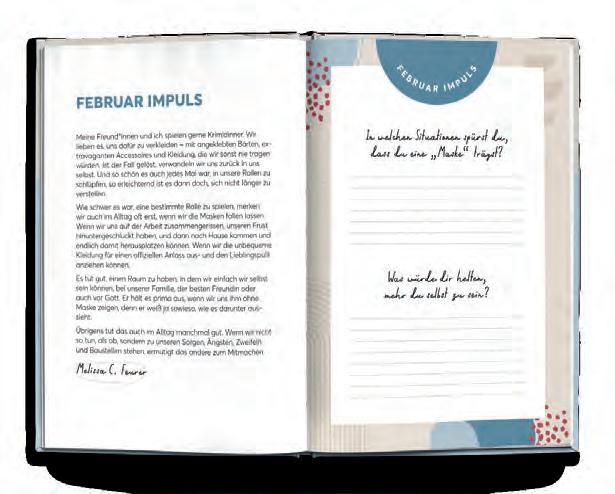 FEBRUAR IMPULS
Meine Freund*innen und ich spielen gerne Krimidinner. Wir
lieben es, uns dafür zu verkleiden – mit angeklebten Bärten, ex-
travaganten Accessoires und Kleidung, die wir sonst nie tragen
würden. Ist der Fall gelöst, verwandeln wir uns zurück in uns
selbst. Und so schön es auch jedes Mal war, in unsere Rollen zu
schlüpfen, so erleichternd ist es dann doch, sich nicht länger zu
verstellen.
Wie schwer es war, eine bestimmte Rolle zu spielen, merken
wir auch im Alltag oft erst, wenn wir die Masken fallen lassen.
Wenn wir uns auf der Arbeit zusammengerissen, unseren Frust
hinuntergeschluckt haben, und dann nach Hause kommen und
endlich damit herausplatzen können. Wenn wir die unbequeme
Kleidung für einen offiziellen Anlass aus- und den Lieblingspulli
anziehen können.
Es tut gut, einen Raum zu haben, in dem wir einfach wir selbst
sein können, bei unserer Familie, der besten Freundin oder
auch vor Gott. Er hält es prima aus, wenn wir uns ihm ohne
Maske zeigen, denn er weiß ja sowieso, wie es darunter aus-
sieht.
Übrigens tut das auch im Alltag manchmal gut. Wenn wir nicht
so tun, als ob, sondern zu unseren Sorgen, Ängsten, Zweifeln
und Baustellen stehen, ermutigt das andere zum Mitmachen.
Melissa C. Feurer
FEBRUAR IMPULS
In welchen Situationen spürst du,
dass du eine „Maske“ trägst?
Was würde dir helfen,
mehr du selbst zu sein?